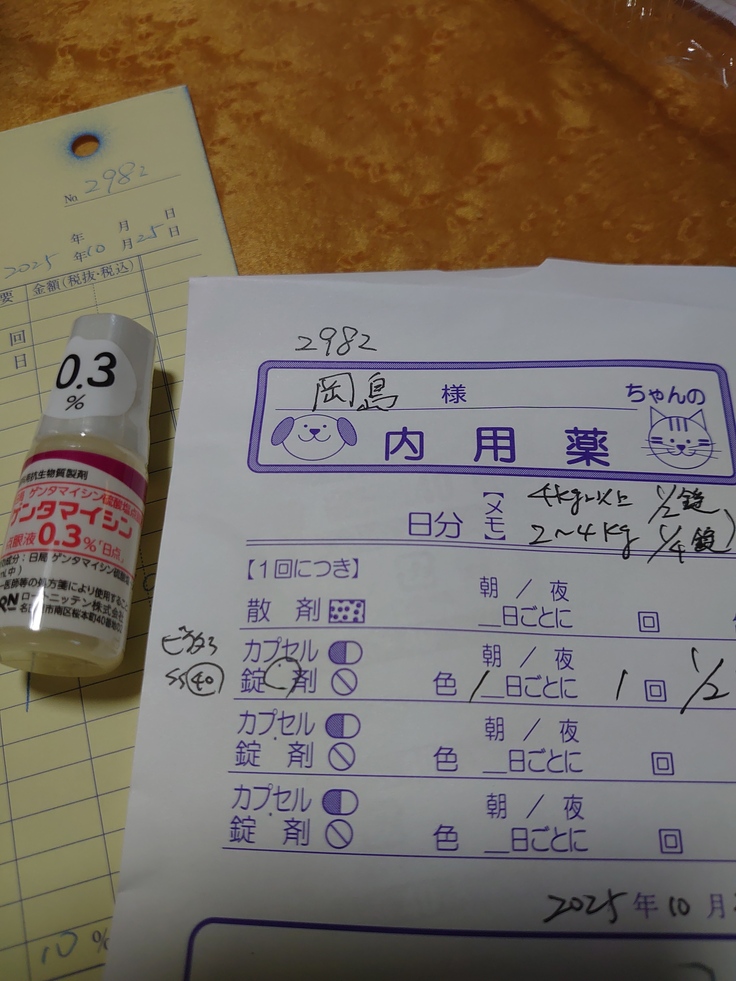 No 2982
年 月 日
2025 年 10 月 25 日
要 金額(税抜・税込)
回
日
10 %
0.3
%
抗生物質製剤
ゲンタマイシン硫酸塩点
ゲンタマイシン
点眼液 0.3%「日点」
成分:日局 ゲンタマイシン硫酸塩
ー医師等の処方箋により使用すること
ロートニッテン株式会社
名古屋市南区桜本町40番地
2982
岡島 様 ちゃんの
内用薬
日分 【メモ】 4kg以上 1/2錠
2~4kg 1/4錠)
【1回につき】
散剤 朝/夜 __日ごとに 回
カプセル
錠剤 色 朝/夜 1日ごとに 1回 1/2
カプセル
錠剤 色 朝/夜 __日ごとに 回
カプセル
錠剤 色 朝/夜 __日ごとに 回
2025年10月